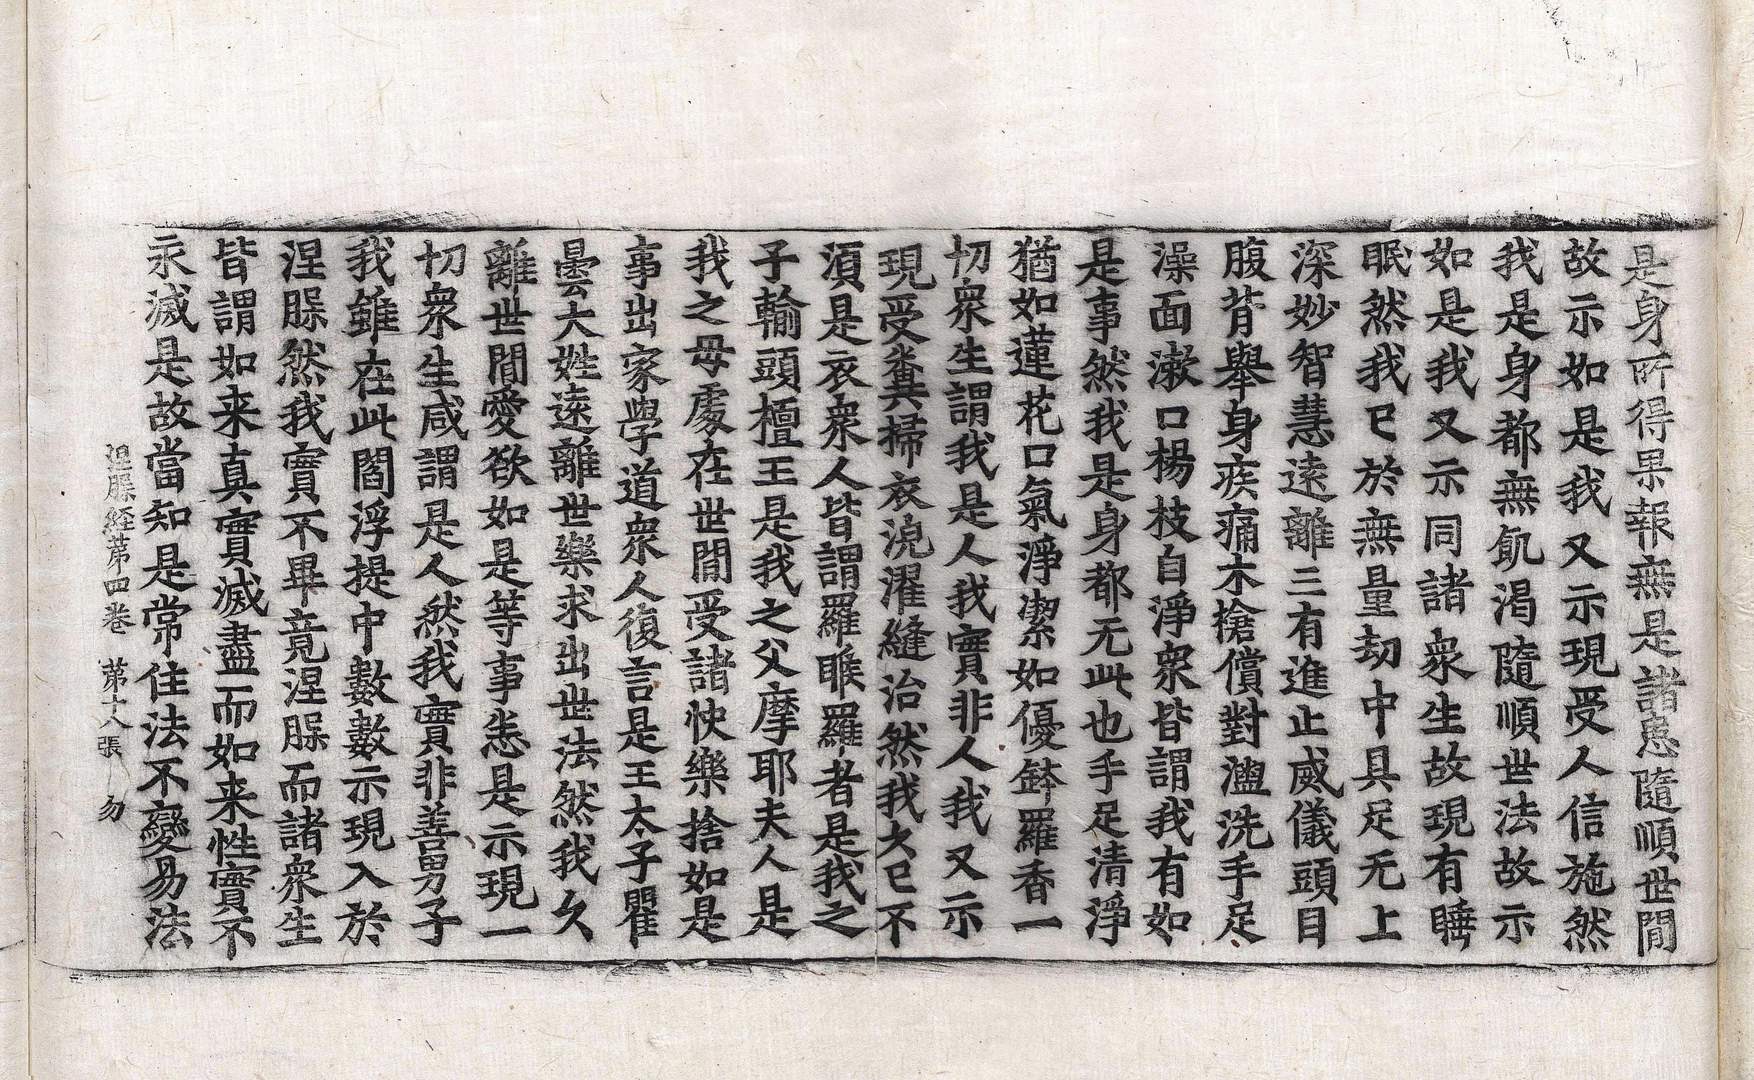 是身所得果報無是諸患隨順世間
故示如是我又示現受人信施然
我是身都無飢渴隨順世法故示
如是我又示同諸衆生故現有睡
眠然我已於無量劫中具足无上
深妙智慧遠離三有進止威儀頭目
腹背舉身疾痛木槍償對盥洗手足
澡面漱口楊枝自淨衆皆謂我有如
是事然我是身都无此也手足清淨
猶如蓮花口氣淨潔如優鉢羅香一
切衆生謂我是人我實非人我又示
現受糞掃衣浣濯縫治然我久已不
湏是衣衆人皆謂羅睺羅者是我之
子輸頭檀王是我之父摩耶夫人是
我之母處在世間受諸快樂捨如是
事出家學道衆人復言是王太子瞿
曇大姓遠離世樂求出世法然我久
離世間愛欲如是等事悉是示現一
切衆生咸謂是人然我實非善男子
我雖在此閻浮提中數數示現入於
涅槃然我實不畢竟涅槃而諸衆生
皆謂如来真實滅盡而如来性實不
永滅是故當知是常住法不變易法
涅槃経苐四巻 苐十八張 勿